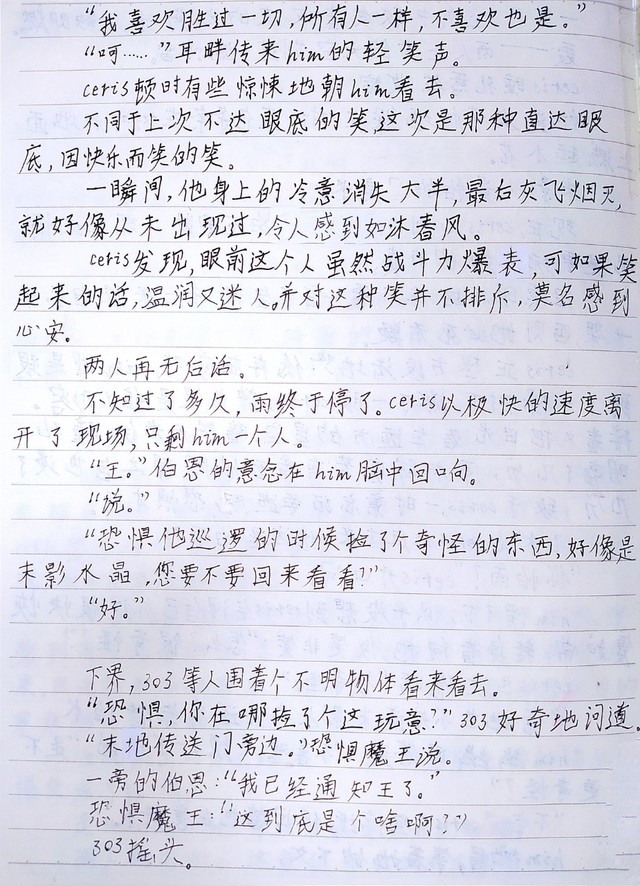 “我喜欢胜过一切,所有人一样,不喜欢也是。”
“呵……”耳畔传来him的轻笑声。
ceris顿时有些惊悚地朝him看去。
不同于上次不达眼底的笑,这次是那种直达眼
底,因快乐而笑的笑。
一瞬间,他身上的冷意消失大半,最后灰飞烟灭,
就好像从未出现过,令人感到如沐春风。
ceris发现,眼前这个人虽然战斗力爆表,可如果笑
起来的话,温润又迷人。并对这种笑并不排斥,莫名感到
心安。
两人再无后话。
不知过了多久,雨终于停了。ceris以极快的速度离
开了现场,只剩him一个人。
“王。”伯恩的意念在him脑中回响。
“说。”
“恐惧他巡逻的时候捡了个奇怪的东西,好像是
末影水晶,您要不要回来看看?”
“好。”
下界,303等人围着个不明物体看来看去。
“恐惧,你在哪捡了个这玩意?”303好奇地问道。
“末地传送门旁边。”恐惧魔王说。
一旁的伯恩:“我已经通知王了。”
恐惧魔王:“这到底是个啥啊?”
303摇头。